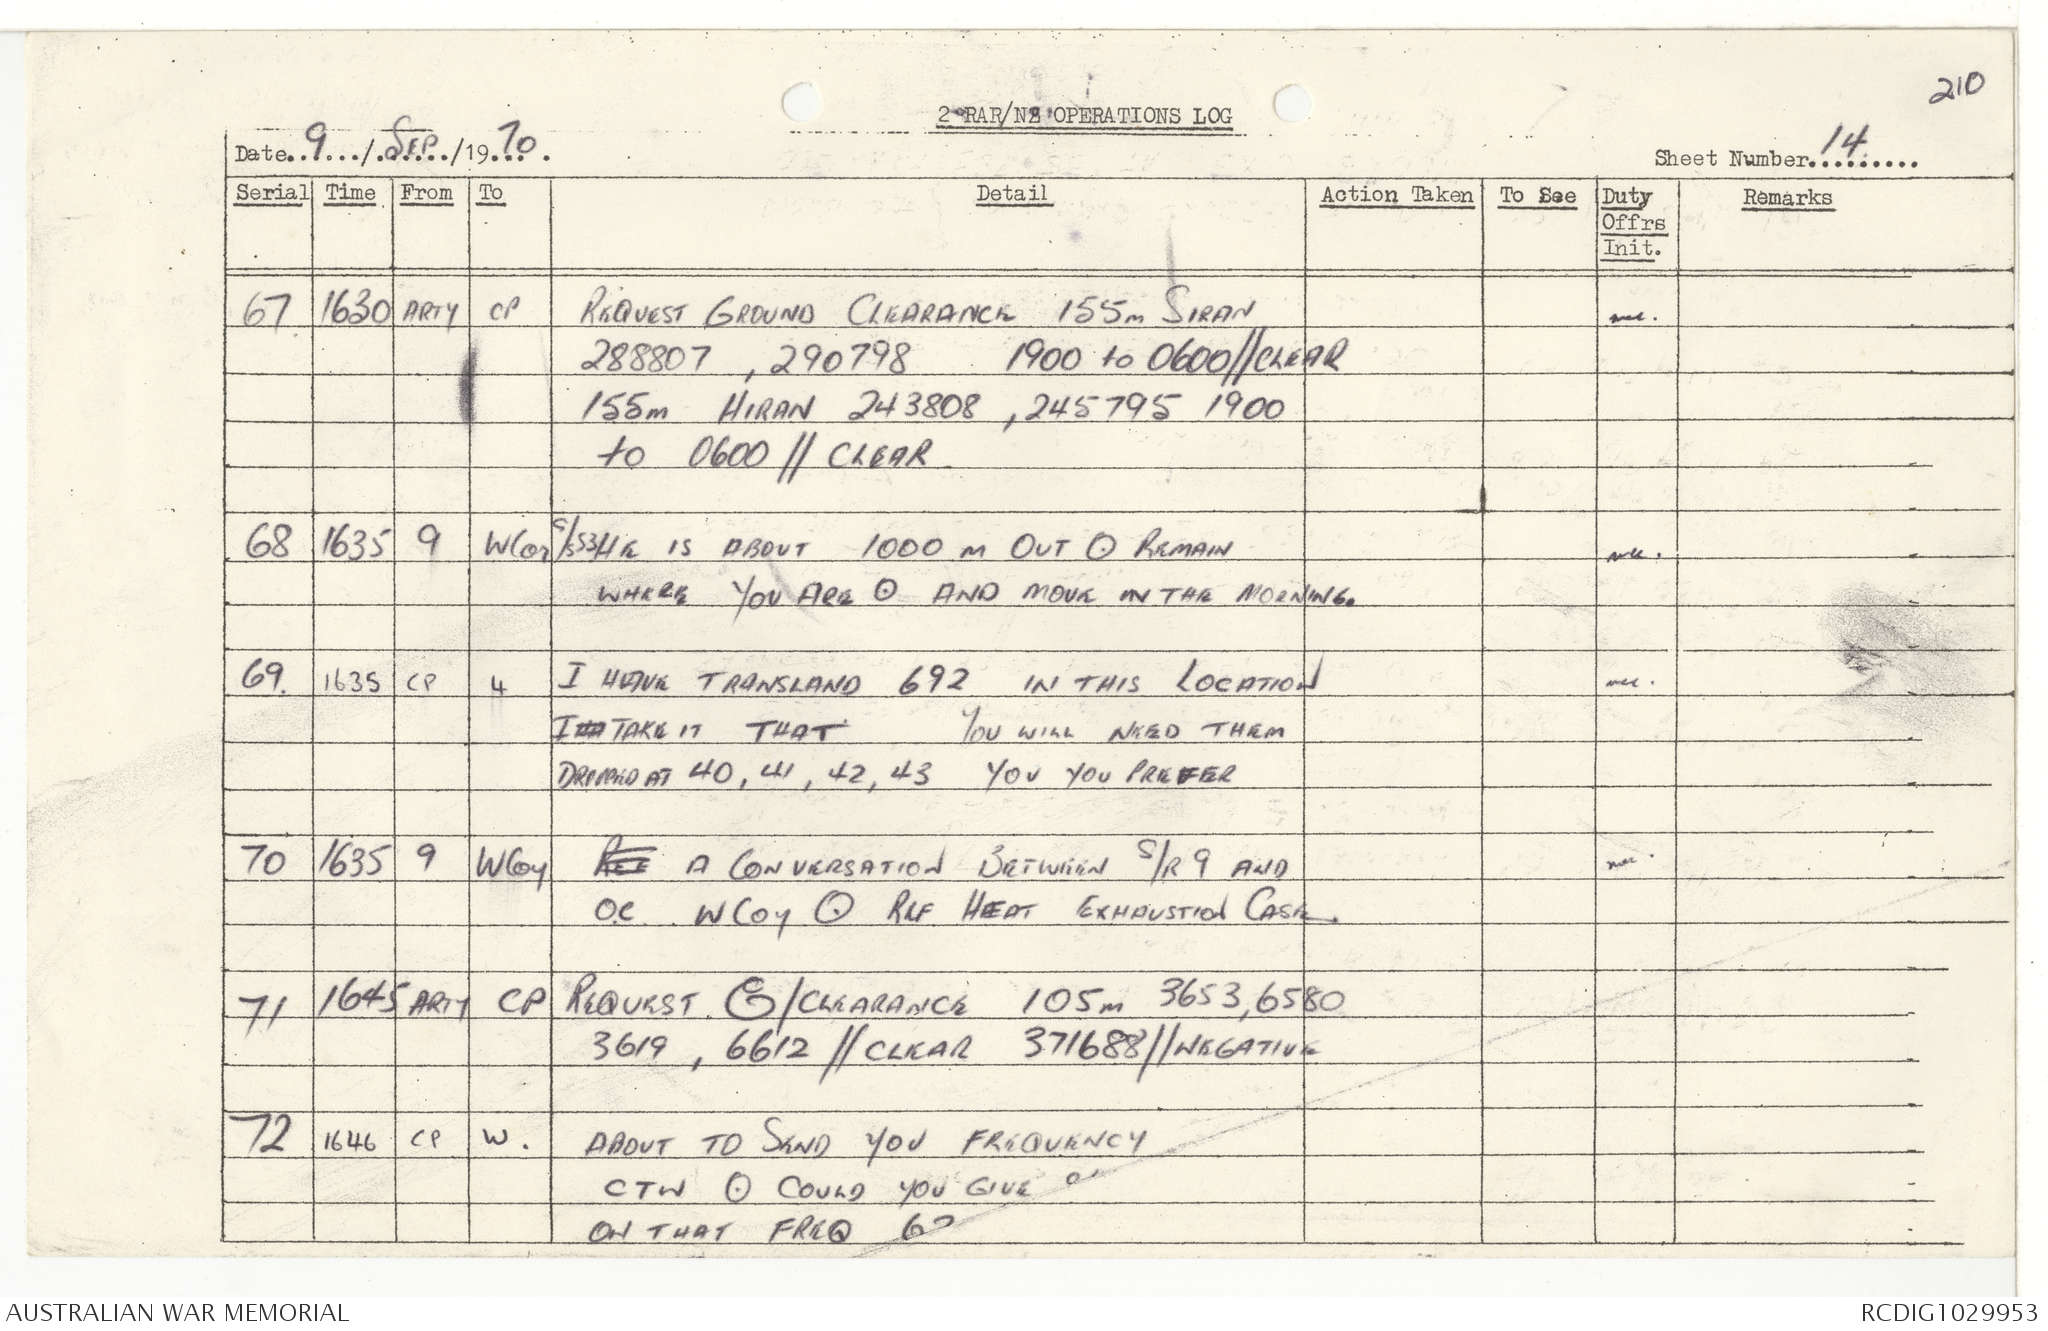 210
2 RAR/NZ OPERATIONS LOG
Date..9.../.SEP../19.70.
Sheet Number..14......
Serial Time From To Detail Action Taken To See Duty Offrs Init. Remarks
67 1630 ARTY CP REQUEST GROUND CLEARANCE 155m SIRAN
288807 , 290798 1900 to 0600//CLEAR
155m HIRAN 243808 , 245795 1900
to 0600 // CLEAR
68 1635 9 WCoy HE IS ABOUT 1000 m OUT ⊙ REMAIN
WHERE YOU ARE ⊙ AND MOVE IN THE MORNING.
69. 1635 CP 4 I HAVE TRANSLAND 692 IN THIS LOCATION
I TAKE IT THAT YOU WILL NEED THEM
DROPPED AT 40, 41, 42, 43 YOU YOU PREFER
70 1635 9 WCoy A CONVERSATION BETWEEN S/R 9 AND
OC WCoy ⊙ REF HEAT EXHAUSTION CASE.
71 1645 ARTY CP REQUEST G/CLEARANCE 105m 3653, 6580
3619 , 6612 //CLEAR 371688//NEGATIVE
72 1646 CP W. ABOUT TO SEND YOU FREQUENCY
CTW ⊙ COULD YOU GIVE
ON THAT FREQ
AUSTRALIAN WAR MEMORIAL
RCDIG1029953